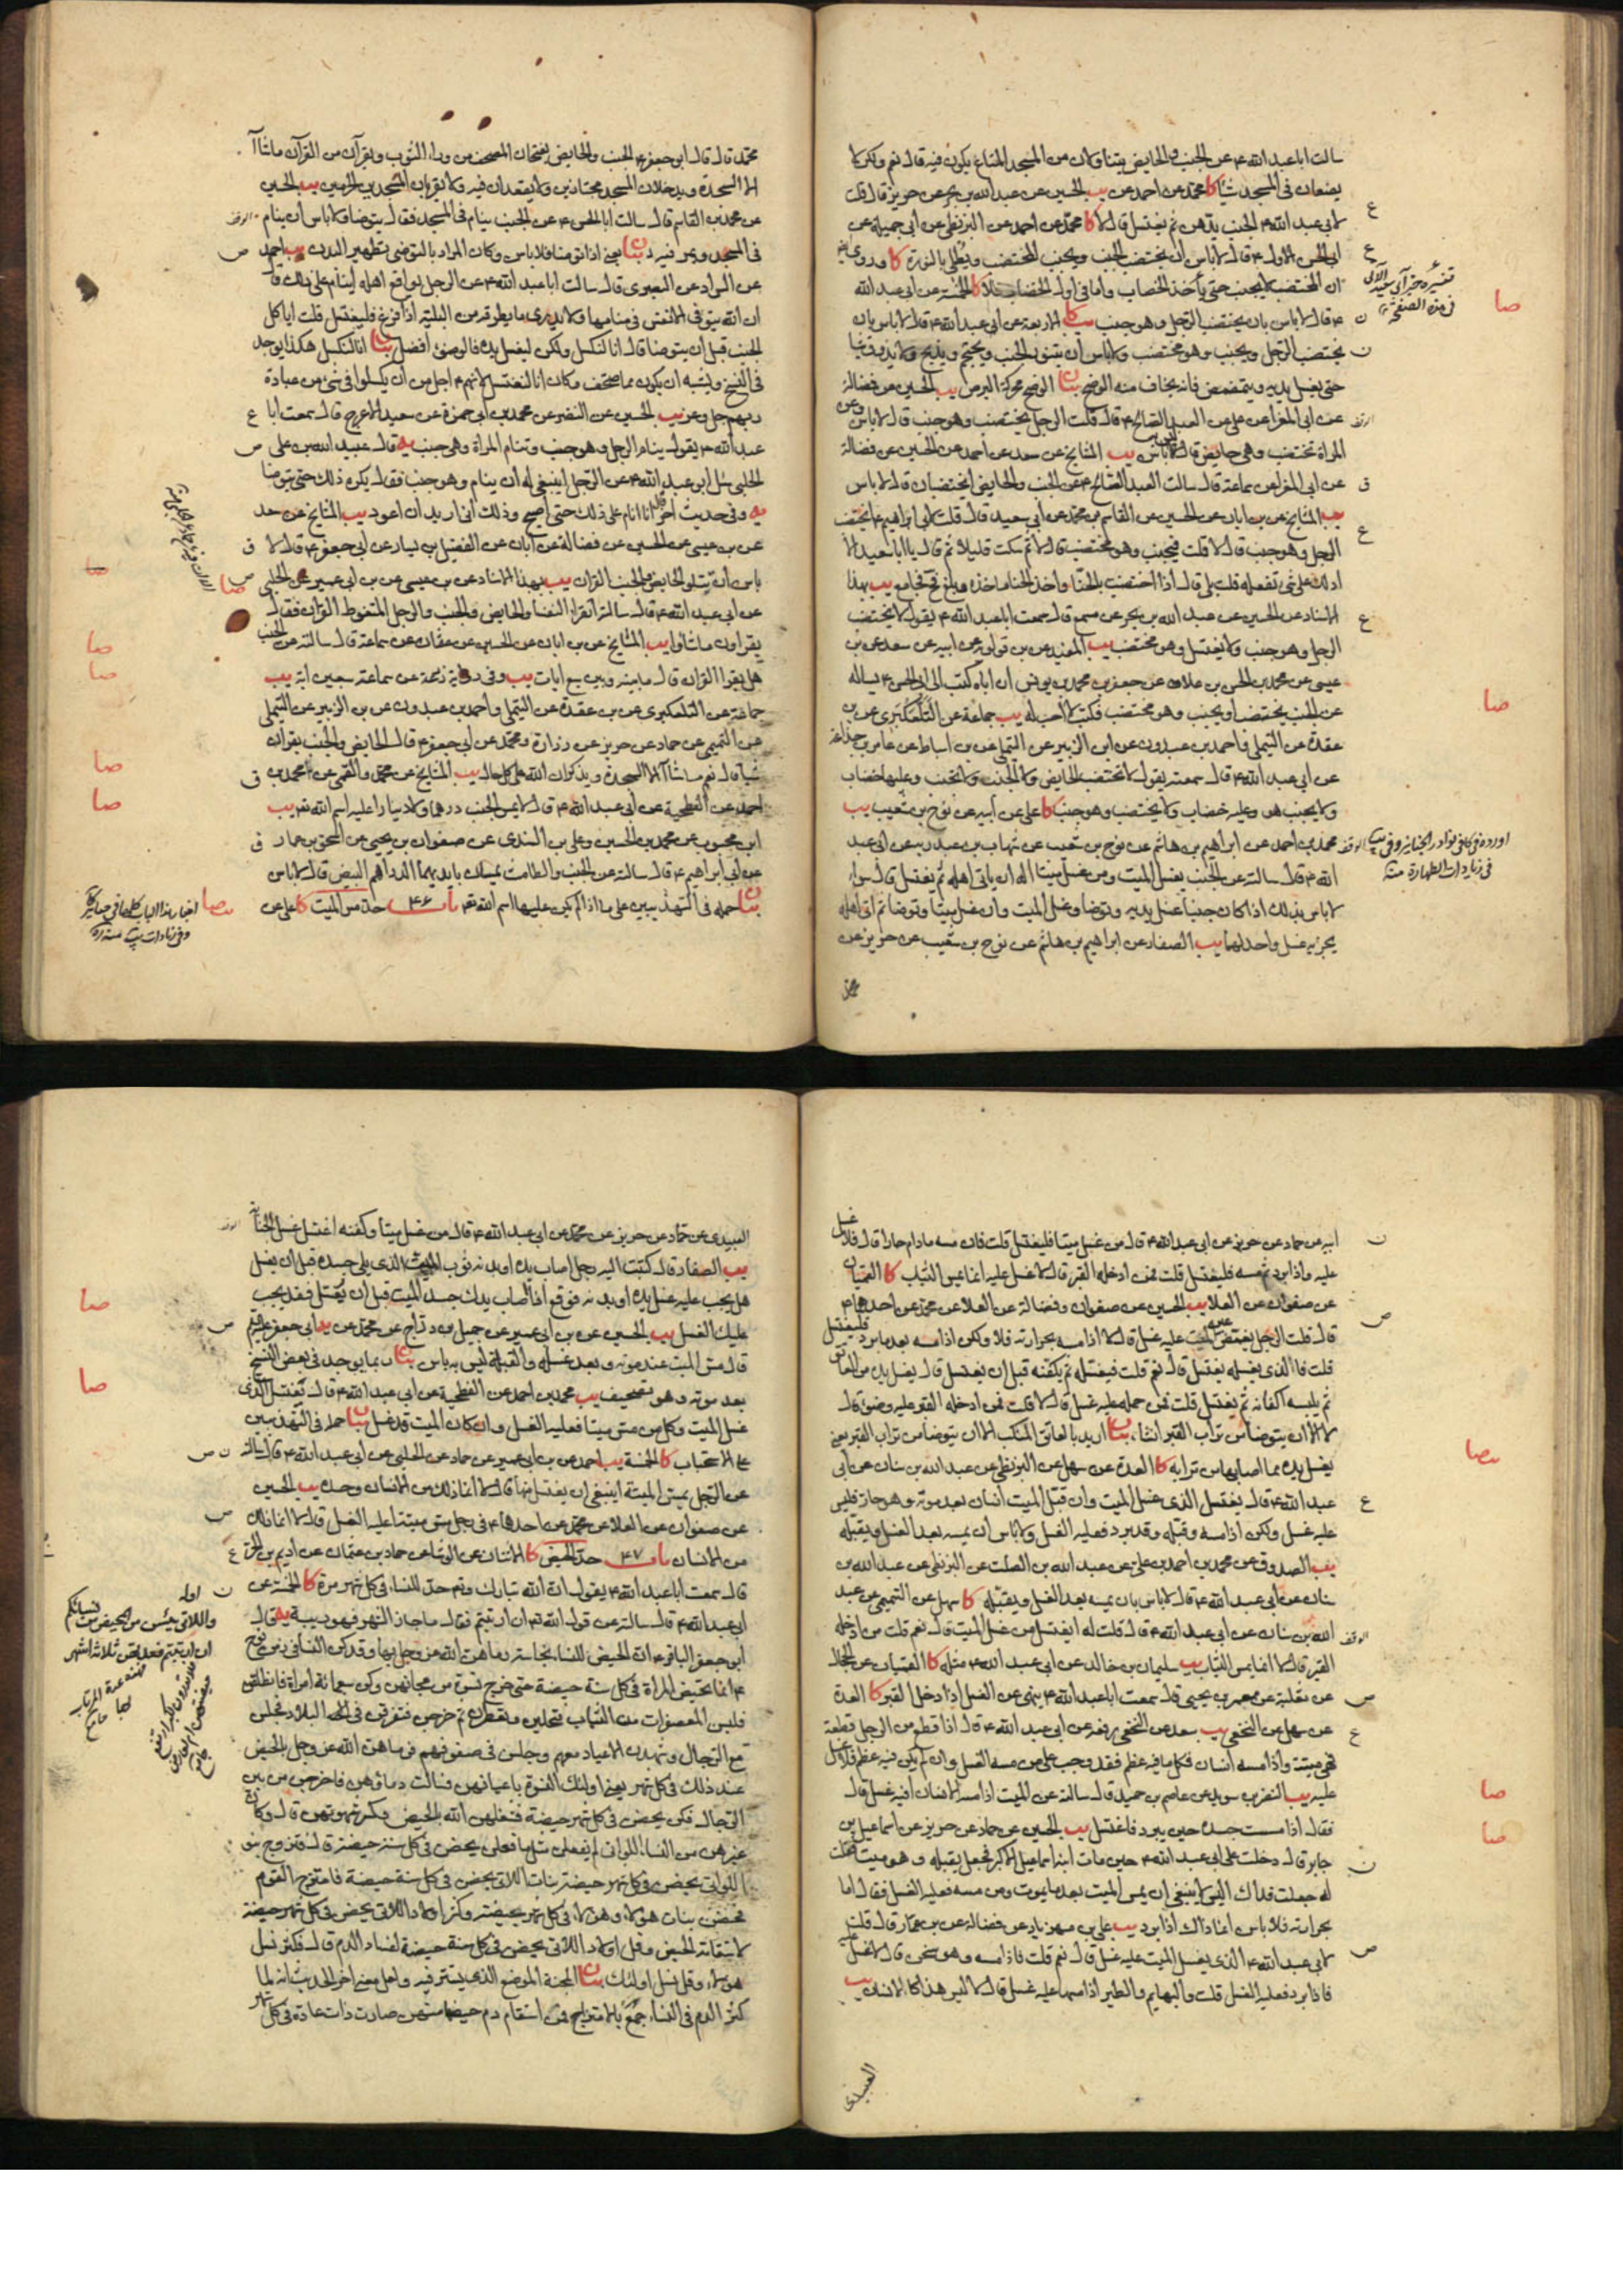 سالت ابا عبد الله ع عن الجنب والحايض يتناولان من المسجد المتاع يكون فيه قال نعم ولكن لا
يضعان في المسجد شيئا كا محمد عن احمد عن يب الحسين عن عبد الله بن بحر عن حريز قال قلت
لابي عبد الله ع الجنب يدهن ثم يغتسل قال لا كا محمد عن احمد عن البزنطي عن ابي جميلة عن
ابي الحسن الاول ع قال لا باس أن يختضب الجنب ويجنب المختضب ويطلى بالنورة كا وروي ايض
ان المختضب لا يجنب حتى يأخذ الخضاب واما في اول الخضاب فلا كا الخمسة عن ابي عبد الله
ع قال لا باس بان يختضب الرجل وهو جنب يب كا الاربعة عن ابي عبد الله ع قال لا باس بان
يختضب الرجل ويجنب وهو مختضب ولا باس أن يتنور الجنب ويحتجم ويذبح ولا يذوق شيئا
حتى يغسل يديه ويتمضمض فانه يخاف منه الوضح بيان الوضح محركة البرص يب الحسين عن فضالة
عن ابي المغرا عن علي عن العبد الصالح ع قال قلت الرجل يختضب وهو جنب قال لا باس وعن
المراة تختضب وهي حايض قال لا باس يب المشايخ عن سعد عن احمد عن الحسين عن فضالة
عن ابي المغرا عن سماعة قال سالت العبد الصالح ع عن الجنب والحايض ايختضبان قال لا باس
يب المشايخ عن بن ابان عن الحسين عن القاسم بن محمد عن ابي سعيد قال قلت لابي ابراهيم ع ايختضب
الرجل وهو جنب قال لا قلت فيجنب وهو مختضب قال لا ثم سكت قليلا ثم قال يا ابا سعيد الا
ادلك على شئ تفعله قلت بلى قال اذا اختضبت بالحنا واخذ الحنا ماخذه وبلغ فحينئذ فجامع يب بهذا
الاسناد عن الحسين عن عبد الله بن بحر عن مسمع قال سمعت ابا عبد الله ع يقول لا يختضب
الرجل وهو جنب ولا يغتسل وهو مختضب يب المفيد عن بن قولويه عن ابيه عن سعد عن بن
عيسى عن محمد بن الحسن بن علان عن جعفر بن محمد بن يونس ان اباه كتب الى ابي الحسن ع يساله
عن الجنب يختضب او يجنب وهو مختضب فكتب لا احب له يب جماعة عن التلعكبري عن بن
عقدة عن التيملي واحمد بن عبدون عن ابن الزبير عن التيملي عن بن اسباط عن عامر بن جذاعة
عن ابي عبد الله ع قال سمعته يقول لا تختضب الحايض ولا الجنب ولا تجنب وعليها خضاب
ولا يجنب هو وعليه خضاب ولا يختضب وهو جنب كا علي عن ابيه عن نوح بن شعيب يب
محمد بن احمد عن ابراهيم بن هاشم عن نوح بن شعيب عن شهاب بن عبد ربه عن ابي عبد
الله ع قال سالته عن الجنب يغسل الميت ومن غسل ميتا اله ان ياتي اهله ثم يغتسل قال سواء
لا باس بذلك اذا كان جنبا غسل يديه وتوضا وغسل الميت وان غسل ميتا وتوضا ثم اتى اهله
يجزيه غسل واحد لهما يب الصفار عن ابراهيم بن هاشم عن نوح بن شعيب عن حريز عن
تفسيره خبر آبي سعيد الآتي
في هذه الصفحة
اورده في كافي نوادر الجنايز وفي يب
في زيادات الطهارة منه
محمد قال قال ابو جعفر ع الجنب والحايض يفتحان المصحف من وراء الثوب ويقرآن من القرآن ما شاآ
الا السجدة ويدخلان المسجد مجتازين ولا يقعدان فيه ولا يقربان المسجدين الحرمين يب الحسين
عن محمد بن القاسم قال سالت ابا الحسن ع عن الجنب ينام في المسجد فقال يتوضا ولا باس أن ينام
في المسجد ويمر فيه بيان يعني اذا توضا فلا باس وكان المراد بالتوضي تطهير البدن يب احمد
عن البرقي عن البصري قال سالت ابا عبد الله ع عن الرجل يواقع اهله اينام على ذلك قال
ان الله يتوفى الانفس في منامها ولا يدري ما يطرقه من البلية اذا فرغ فليغتسل قلت اياكل
الجنب قبل أن يتوضا قال انا لنكسل ولكن ليغسل يده فالوضوء افضل بيان انا لنكسل هكذا يوجد
في النسخ ويشبه ان يكون مما صحف وكان انا لنغتسل لانهم ع اجل من أن يكسلوا في شئ من عبادة
ربهم جل وعز يب الحسين عن النضر عن محمد بن ابي حمزة عن سعيد الاعرج قال سمعت ابا
عبد الله ع يقول ينام الرجل وهو جنب وتنام المراة وهي جنب يه قال عبيد الله بن علي
الحلبي سئل ابو عبد الله ع عن الرجل اينبغي له أن ينام وهو جنب فقال يكره ذلك حتى يتوضا
يه وفي حديث اخر قال انا انام على ذلك حتى أصبح وذلك أني اريد أن اعود يب المشايخ عن سعد
عن بن عيسى عن الحسين عن فضالة عن ابان عن الفضيل بن يسار عن ابي جعفر ع قال لا
باس أن يتلو الحايض والجنب القران يب بهذا الاسناد عن بن عيسى عن بن ابي عمير عن الحلبي
عن ابي عبد الله ع قال سالته أتقرا النفسا والحايض والجنب والرجل المتغوط القران فقال
يقراون ما شاؤا يب المشايخ عن بن ابان عن الحسين عن عثمان عن سماعة قال سالته عن الجنب
هل يقرا القران قال ما بينه وبين سبع ايات يب وفي رواية زرعة عن سماعة سبعين اية يب
جماعة عن التلعكبري عن بن عقدة عن التيملي واحمد بن عبدون عن بن الزبير عن التيملي
عن التميمي عن حماد عن حريز عن زرارة ومحمد عن ابي جعفر ع قال الحايض والجنب يقران
شيئا قال نعم ما شاآ الا السجدة ويذكران الله على كل حال يب المشايخ عن محمد والقمي عن محمد بن
احمد عن الفطحية عن أبي عبد الله ع قال لا يمس الجنب درهما ولا دينارا عليه اسم الله تعم يب
ابن محبوب عن محمد بن الحسين وعلي بن السندي عن صفوان بن يحيى عن اسحق بن عمار
عن ابي ابراهيم ع قال سالته عن الجنب والطامث يمسان بايديهما الدراهم البيض قال لا باس
بيان حمله في التهذيبين على ما اذا لم يكن عليها اسم الله تعم باب ٤٦ حد مس الميت كا علي عن
اخبار هذا الباب كلها في جنايز كا
وفي زيادات يب منه ره
ابيه عن حماد عن حريز عن ابي عبد الله ع قال من غسل ميتا فليغتسل قلت فان مسه ما دام حارا قال فلا غسل
عليه واذا برد ثم مسه فليغتسل قلت فمن ادخله القبر قال لا غسل عليه انما يمس الثياب كا القميان
عن صفوان عن العلا يب الحسين عن صفوان وفضالة عن العلا عن محمد عن احدهما ع
قال قلت الرجل يغمض الميت عليه غسل قال لا اذا مسه بحرارته فلا ولكن اذا مسه بعد ما برد فليغتسل
قلت فالذي يغسله يغتسل قال نعم قلت فيغسله ثم يكفنه قبل ان يغتسل قال يغسل يده من العاتق
ثم يلبسه اكفانه ثم يغتسل قلت فمن حمله عليه غسل قال لا قلت فمن ادخله القبر عليه وضوء قال
لا الا ان يتوضا من تراب القبر انشاء بيان اريد بالعاتق المنكب الا ان يتوضا من تراب القبر يعني
يغسل يده مما اصابها من ترابه كا العدة عن سهل عن البزنطي عن عبد الله بن سنان عن أبي
عبد الله ع قال يغتسل الذي غسل الميت وان قبل الميت انسان بعد موته وهو حار فليس
عليه غسل ولكن اذا مسه وقبله وقد برد فعليه الغسل ولا باس أن يمسه بعد الغسل ويقبله
يب الصدوق عن محمد بن احمد بن علي عن عبد الله بن الصلت عن البزنطي عن عبد الله بن
سنان عن أبي عبد الله ع قال لا باس بان يمسه بعد الغسل ويقبله كا سهل عن التميمي عن عبد
الله بن سنان عن ابي عبد الله ع قال قلت له ايغتسل من غسل الميت قال نعم قلت من ادخله
القبر قال لا انما يمس الثياب يب سليمان بن خالد عن ابي عبد الله ع مثله كا القميان عن الحجال
عن ثعلبة عن معمر بن يحيى قال سمعت ابا عبد الله ع ينهى عن الغسل اذا دخل القبر كا العدة
عن سهل عن النخعي يب سعد عن النخعي رفعه عن ابي عبد الله ع قال اذا قطع من الرجل قطعة
فهي ميتة واذا مسه انسان فكل ما فيه عظم فقد وجب على من مسه الغسل وان لم يكن فيه عظم فلا غسل
عليه يب النضر بن سويد عن عاصم بن حميد قال سالته عن الميت اذا مسه الانسان افيه غسل قال
فقال اذا مسست جسده حين يبرد فاغتسل يب الحسين عن حماد عن حريز عن اسماعيل بن
جابر قال دخلت على ابي عبد الله ع حين مات ابنه اسماعيل الاكبر فجعل يقبله وهو ميت فقلت
له جعلت فداك اليس لا ينبغي ان يمس الميت بعد ما يموت ومن مسه فعليه الغسل فقال اما
بحرارته فلا باس انما ذاك اذا برد يب علي بن مهزيار عن فضالة عن بن عمار قال قلت
لابي عبد الله ع الذي يغسل الميت عليه غسل قال نعم قلت فاذا مسه وهو سخن قال لا غسل عليه
فاذا برد فعليه الغسل قلت والبهايم والطير اذا مسها عليه غسل قال لا ليس هذا كالانسان يب
العبيدي
العبيدي عن حماد عن حريز عن محمد عن ابي عبد الله ع قال من غسل ميتا وكفنه اغتسل غسل الجنابة
يب الصفار قال كتبت اليه رجل اصاب يده او بدنه ثوب الميت الذي يلي جسده قبل ان يغسل
هل يجب عليه غسل يده او بدنه فوقع اذا اصاب يدك جسد الميت قبل ان يغسل فقد يجب
عليك الغسل يب الحسين عن بن ابي عمير عن جميل بن دراج عن محمد عن يه ابي جعفر ع
قال مس الميت عند موته وبعد غسله والقبلة ليس به باس بيان ربما يوجد في بعض النسخ
بعد موته وهو تصحيف يب محمد بن احمد عن الفطحية عن ابي عبد الله ع قال يغتسل الذي
غسل الميت وكل من مس ميتا فعليه الغسل وان كان الميت قد غسل بيان حمله في التهذيبين
على الاستحباب كا الخمسة يب احمد عن بن ابي عمير عن حماد عن الحلبي عن ابي عبد الله ع قال سالته
عن الرجل يمس الميتة اينبغي ان يغتسل منها قال لا انما ذلك من الانسان وحده يب الحسين
عن صفوان عن العلا عن محمد عن احدهما ع في رجل مس ميتة اعليه الغسل قال لا انما ذلك
من الانسان باب ٤٧ حد الحيض كا الاثنان عن الوشا عن حماد بن عثمان عن اديم بن الحر
قال سمعت ابا عبد الله ع يقول ان الله تبارك وتعم حد للنساء في كل شهر مرة كا الخمسة عن
ابي عبد الله ع قال سالته عن قول الله تعم ان ارتبتم فقال ما جاز الشهر فهو ريبة يه قال
ابو جعفر الباقر ع ان الحيض للنساء نجاسة رماهن الله عز وجل بها وقد كن النساء في زمن نوح
ع انما تحيض المراة في كل سنة حيضة حتى خرج نسوة من مجانهن وكن سبعمائة امراة فانطلقن
فلبسن المعصفرات من الثياب وتحلين وتعطرن ثم خرجن فتفرقن في البلاد فجلسن
مع الرجال وشهدن الاعياد معهم وجلسن في صفوفهم فرماهن الله عز وجل بالحيض
عند ذلك في كل شهر يعني اولئك النسوة باعيانهن فسالت دماؤهن فاخرجن من بين
الرجال فكن يحضن في كل شهر حيضة فشغلهن الله بالحيض وكسر شهوتهن قال وكان
غيرهن من النساء اللواتي لم يفعلن مثل ما فعلن يحضن في كل سنة حيضة قال فتزوج بنو
اللواتي يحضن في كل شهر حيضة بنات اللاتي يحضن في كل سنة حيضة فامتزج القوم
فحضن بنات هؤلاء وهؤلاء في كل شهر حيضة وكثر اولاد اللاتي يحضن في كل شهر حيضة
لاستقامة الحيض وقل اولاد اللاتي يحضن في كل سنة حيضة لفساد الدم قال فكثر نسل
هؤلاء وقل نسل اولئك بيان المجنة الموضع الذي يستتر فيه ولعل معنى اخر الحديث انه لما
كثر الدم في النساء بالامتزاج فمن استقام دم حيضها منهن صارت ذات عادة في كل شهر
اوله
واللائي يئسن من المحيض من نسائكم
ان ارتبتم فعدتهن ثلاثة اشهر